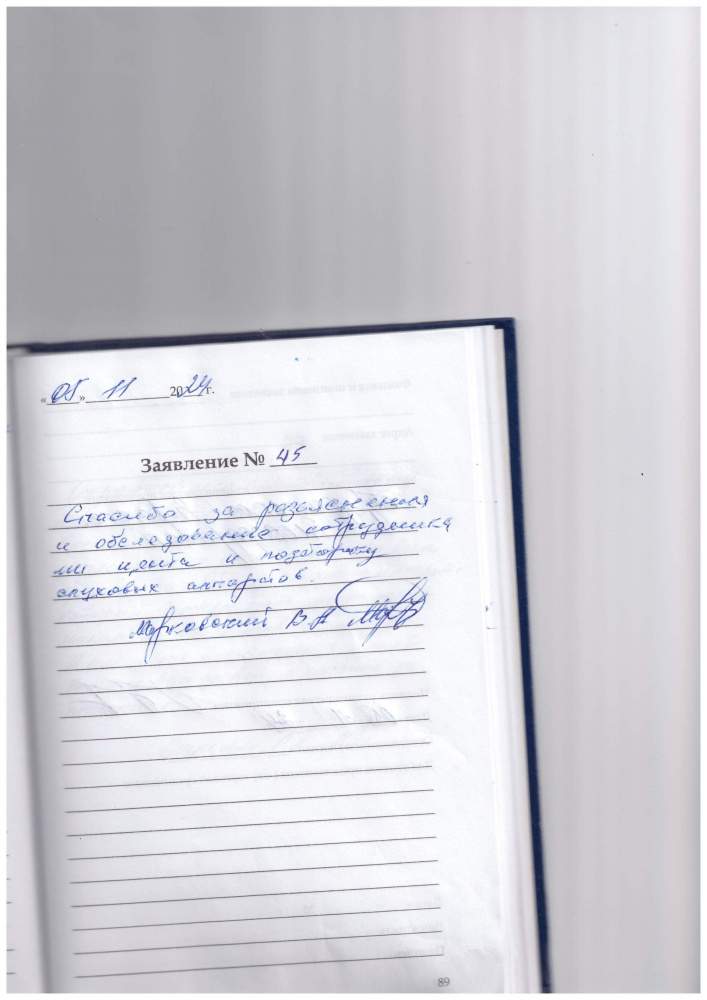 «05» 11 2024г.
Заявление № 45
Спасибо за разъяснения
и обследование сотрудника
ми центра и
слуховых аппаратов.
Марковский В А
89